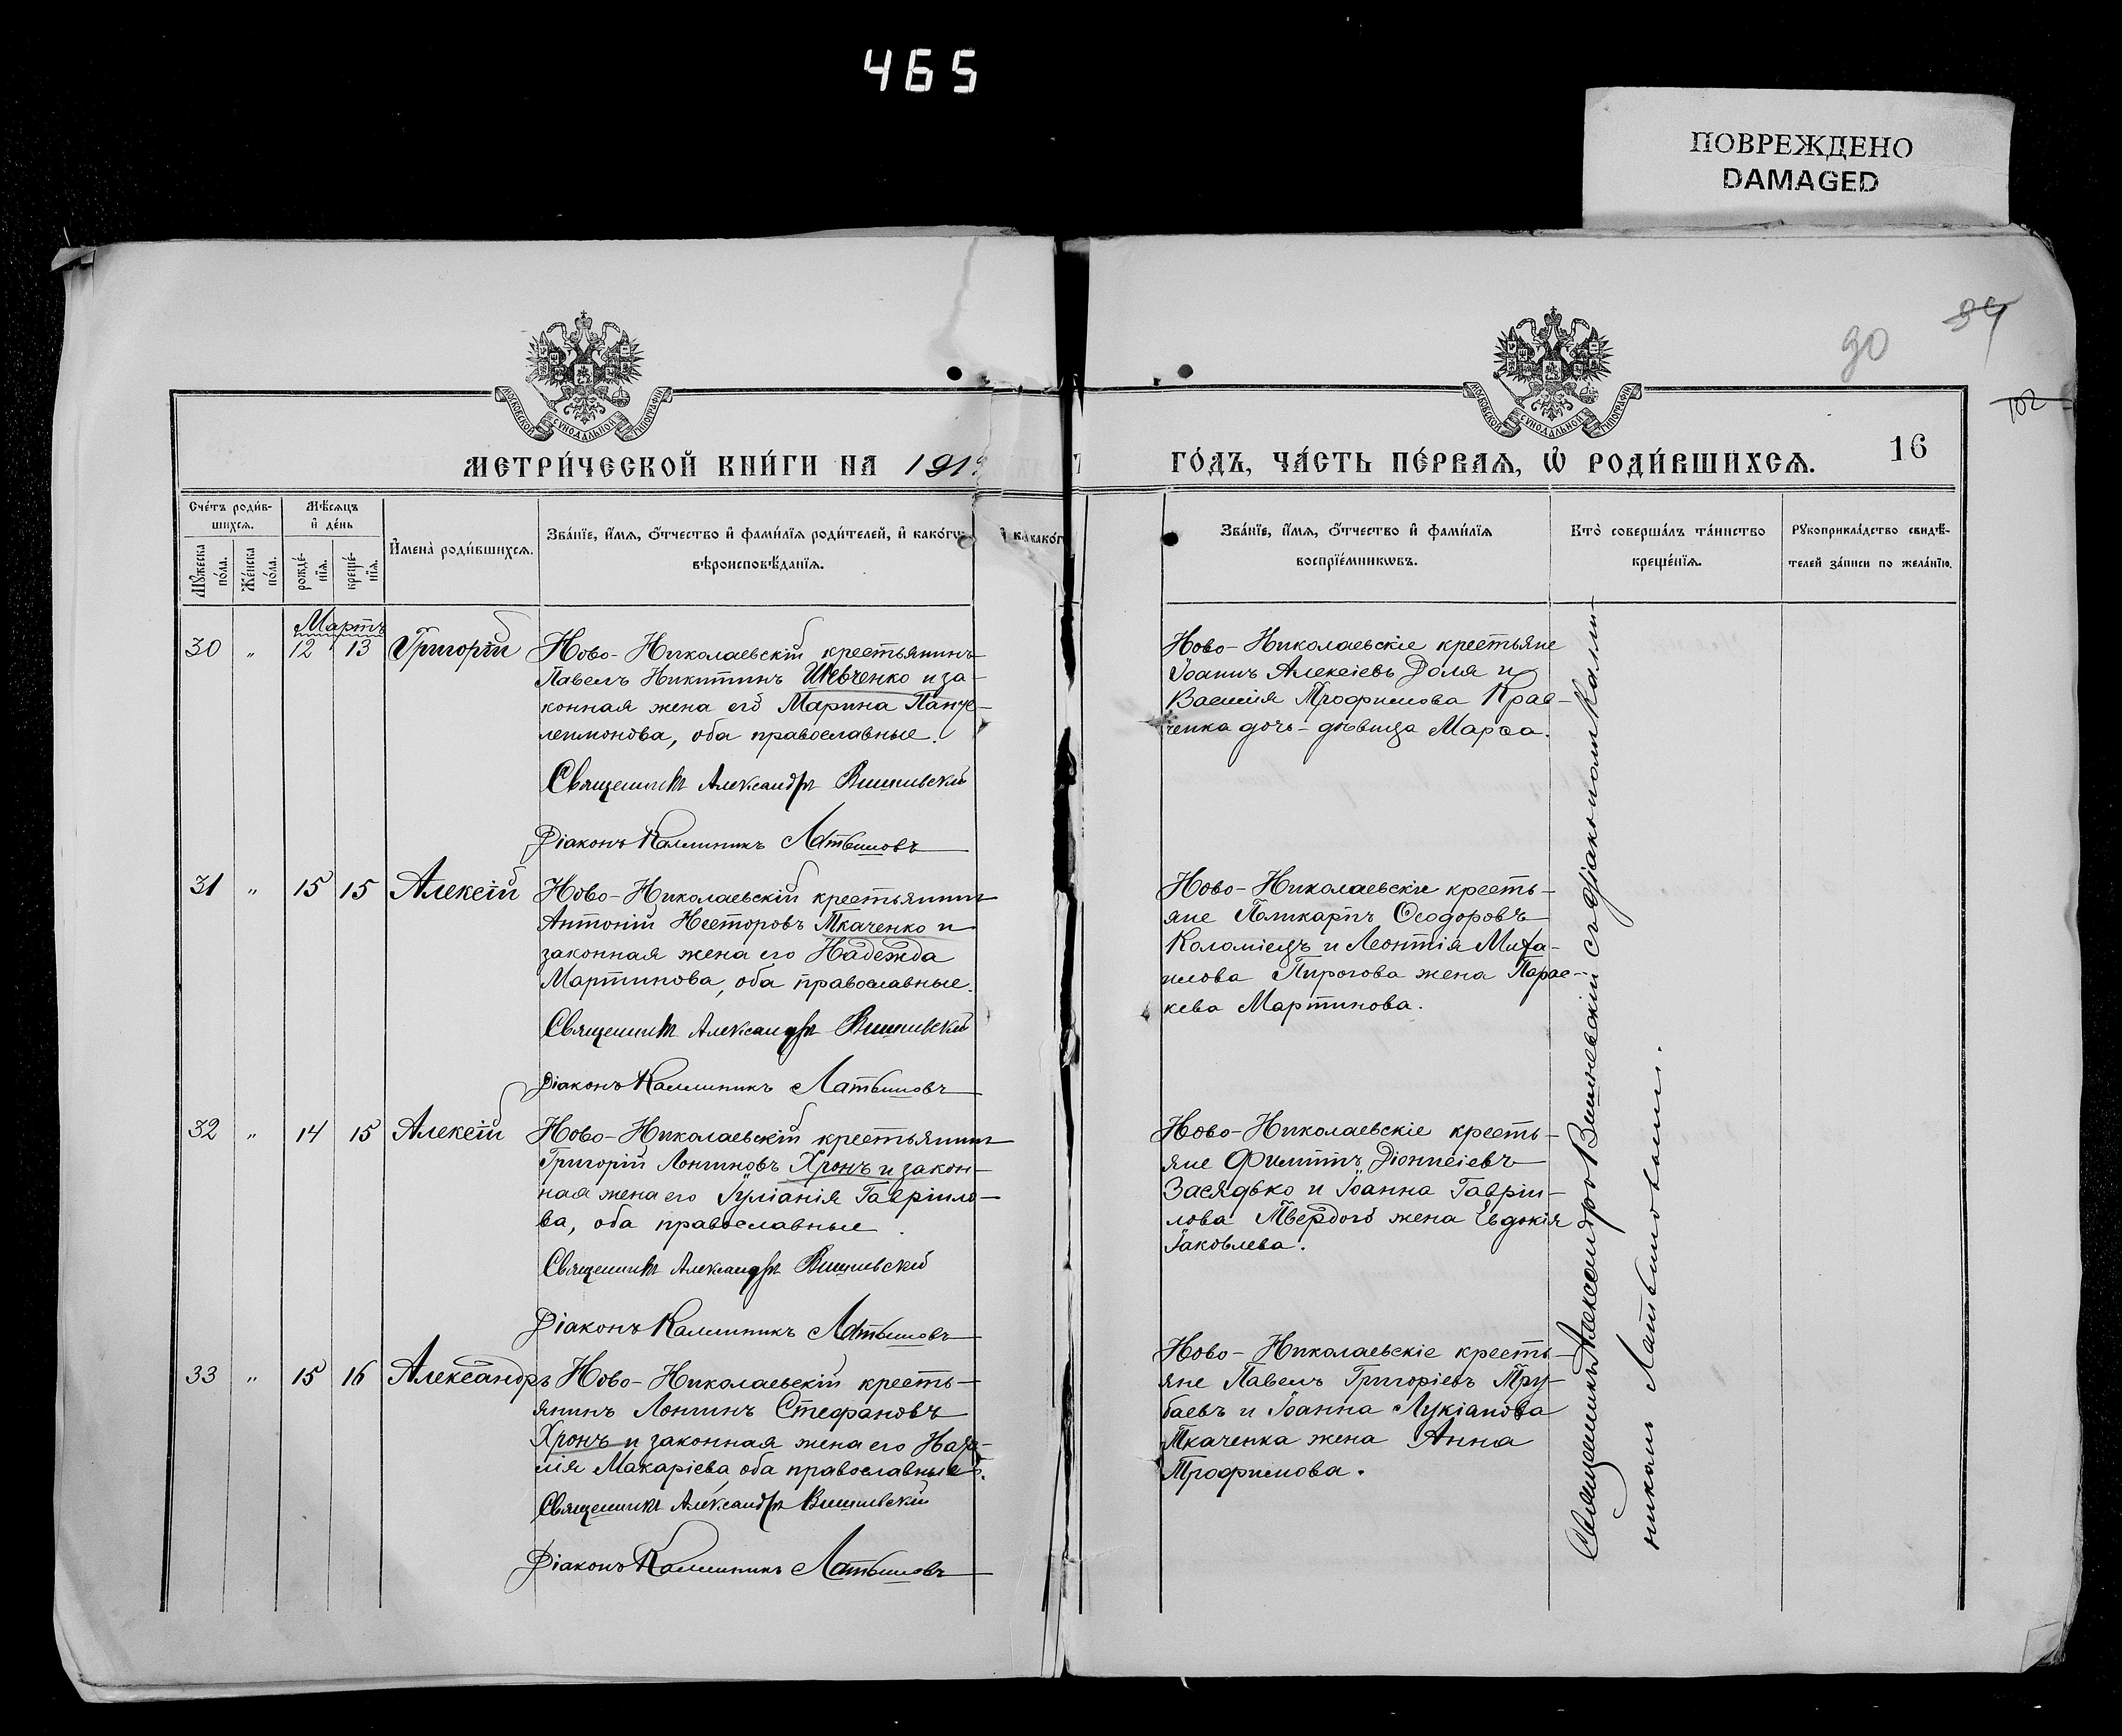 465
ПОВРЕЖДЕНО
DAMAGED
90
102
МОСКОВСКОЙ СѴНОДАЛЬНОЙ ТИПОГРАФІИ
МОСКОВСКОЙ СѴНОДАЛЬНОЙ ТИПОГРАФІИ
МЕТРИ́ЧЕСКОЙ КНИ́ГИ НА 191
ГО́ДЪ, ЧА́СТЬ ПЕ́РВАЯ, Ѽ РОДИ́ВШИХСЯ.
16
Сче́тъ роди́в-
шихся.
Мꙋжеска по́ла.
Же́нска по́ла.
Мѣ́сяцъ
и҆ де́нь
рожде́-
нїя.
креще́-
нїя.
И҆мена̀ роди́вшихся.
Зва́нїе, и҆́мя, ѻ҆́тчество и҆ фами́лїя роди́телей, и҆ како́гѡ
вѣроисповѣ́данїя.
Зва́нїе, и҆́мя, ѻ҆́тчество и҆ фами́лїя
воспрїе́мникѡвъ.
Кто̀ соверша́лъ та́инство
креще́нїя.
Рꙋкоприкла́дство свидѣ́-
телей за́писи по жела́нїю.
Мартъ
30 " 12 13 Григорій
Ново-Николаевскій крестьянинъ
Павелъ Никитинъ Шевченко и за-
конная жена его Марина Панте-
леимонова, оба православные.
Священникъ Александръ Вишневскій
Діаконъ Каллиникъ Латышовъ
Ново-Николаевскіе крестьяне
Іоаннъ Алексіевъ Доля и
Василія Трофимова Крав-
ченка дочь-дѣвица Марѳа.
31 " 15 15 Алексій
Ново-Николаевскій крестьянинъ
Антоній Несторовъ Ткаченко и
законная жена его Надежда
Мартинова, оба православные.
Священникъ Александръ Вишневскій
Діаконъ Каллиникъ Латышовъ
Ново-Николаевскіе кресть-
яне Поликарпъ Ѳеодоровъ
Коломіецъ и Леонтія Миха-
илова Пирогова жена Парас-
кева Мартинова.
32 " 14 15 Алексій
Ново-Николаевскій крестьянинъ
Григорій Лонгиновъ Хронъ и закон-
ная жена его Іуліанія Гавріило-
ва, оба православные.
Священникъ Александръ Вишневскій
Діаконъ Каллиникъ Латышовъ
Ново-Николаевскіе кресть-
яне Филиппъ Діонисіевъ
Засядько и Іоанна Гаврiи-
лова Твердого жена Евдокія
Іаковлева.
33 " 15 16 Александръ
Ново-Николаевскій кресть-
янинъ Лонгинъ Стефановъ
Хронъ и законная жена его Ната-
лія Макаріева, оба православные.
Священникъ Александръ Вишневскій
Діаконъ Каллиникъ Латышовъ
Ново-Николаевскіе кресть-
яне Павелъ Григоріевъ Тру-
баевъ и Іоанна Лукіанова
Ткаченка жена Анна
Трофимова.
Священникъ Александръ Вишневскій съ діакономъ Калли-
никомъ Латышовымъ.